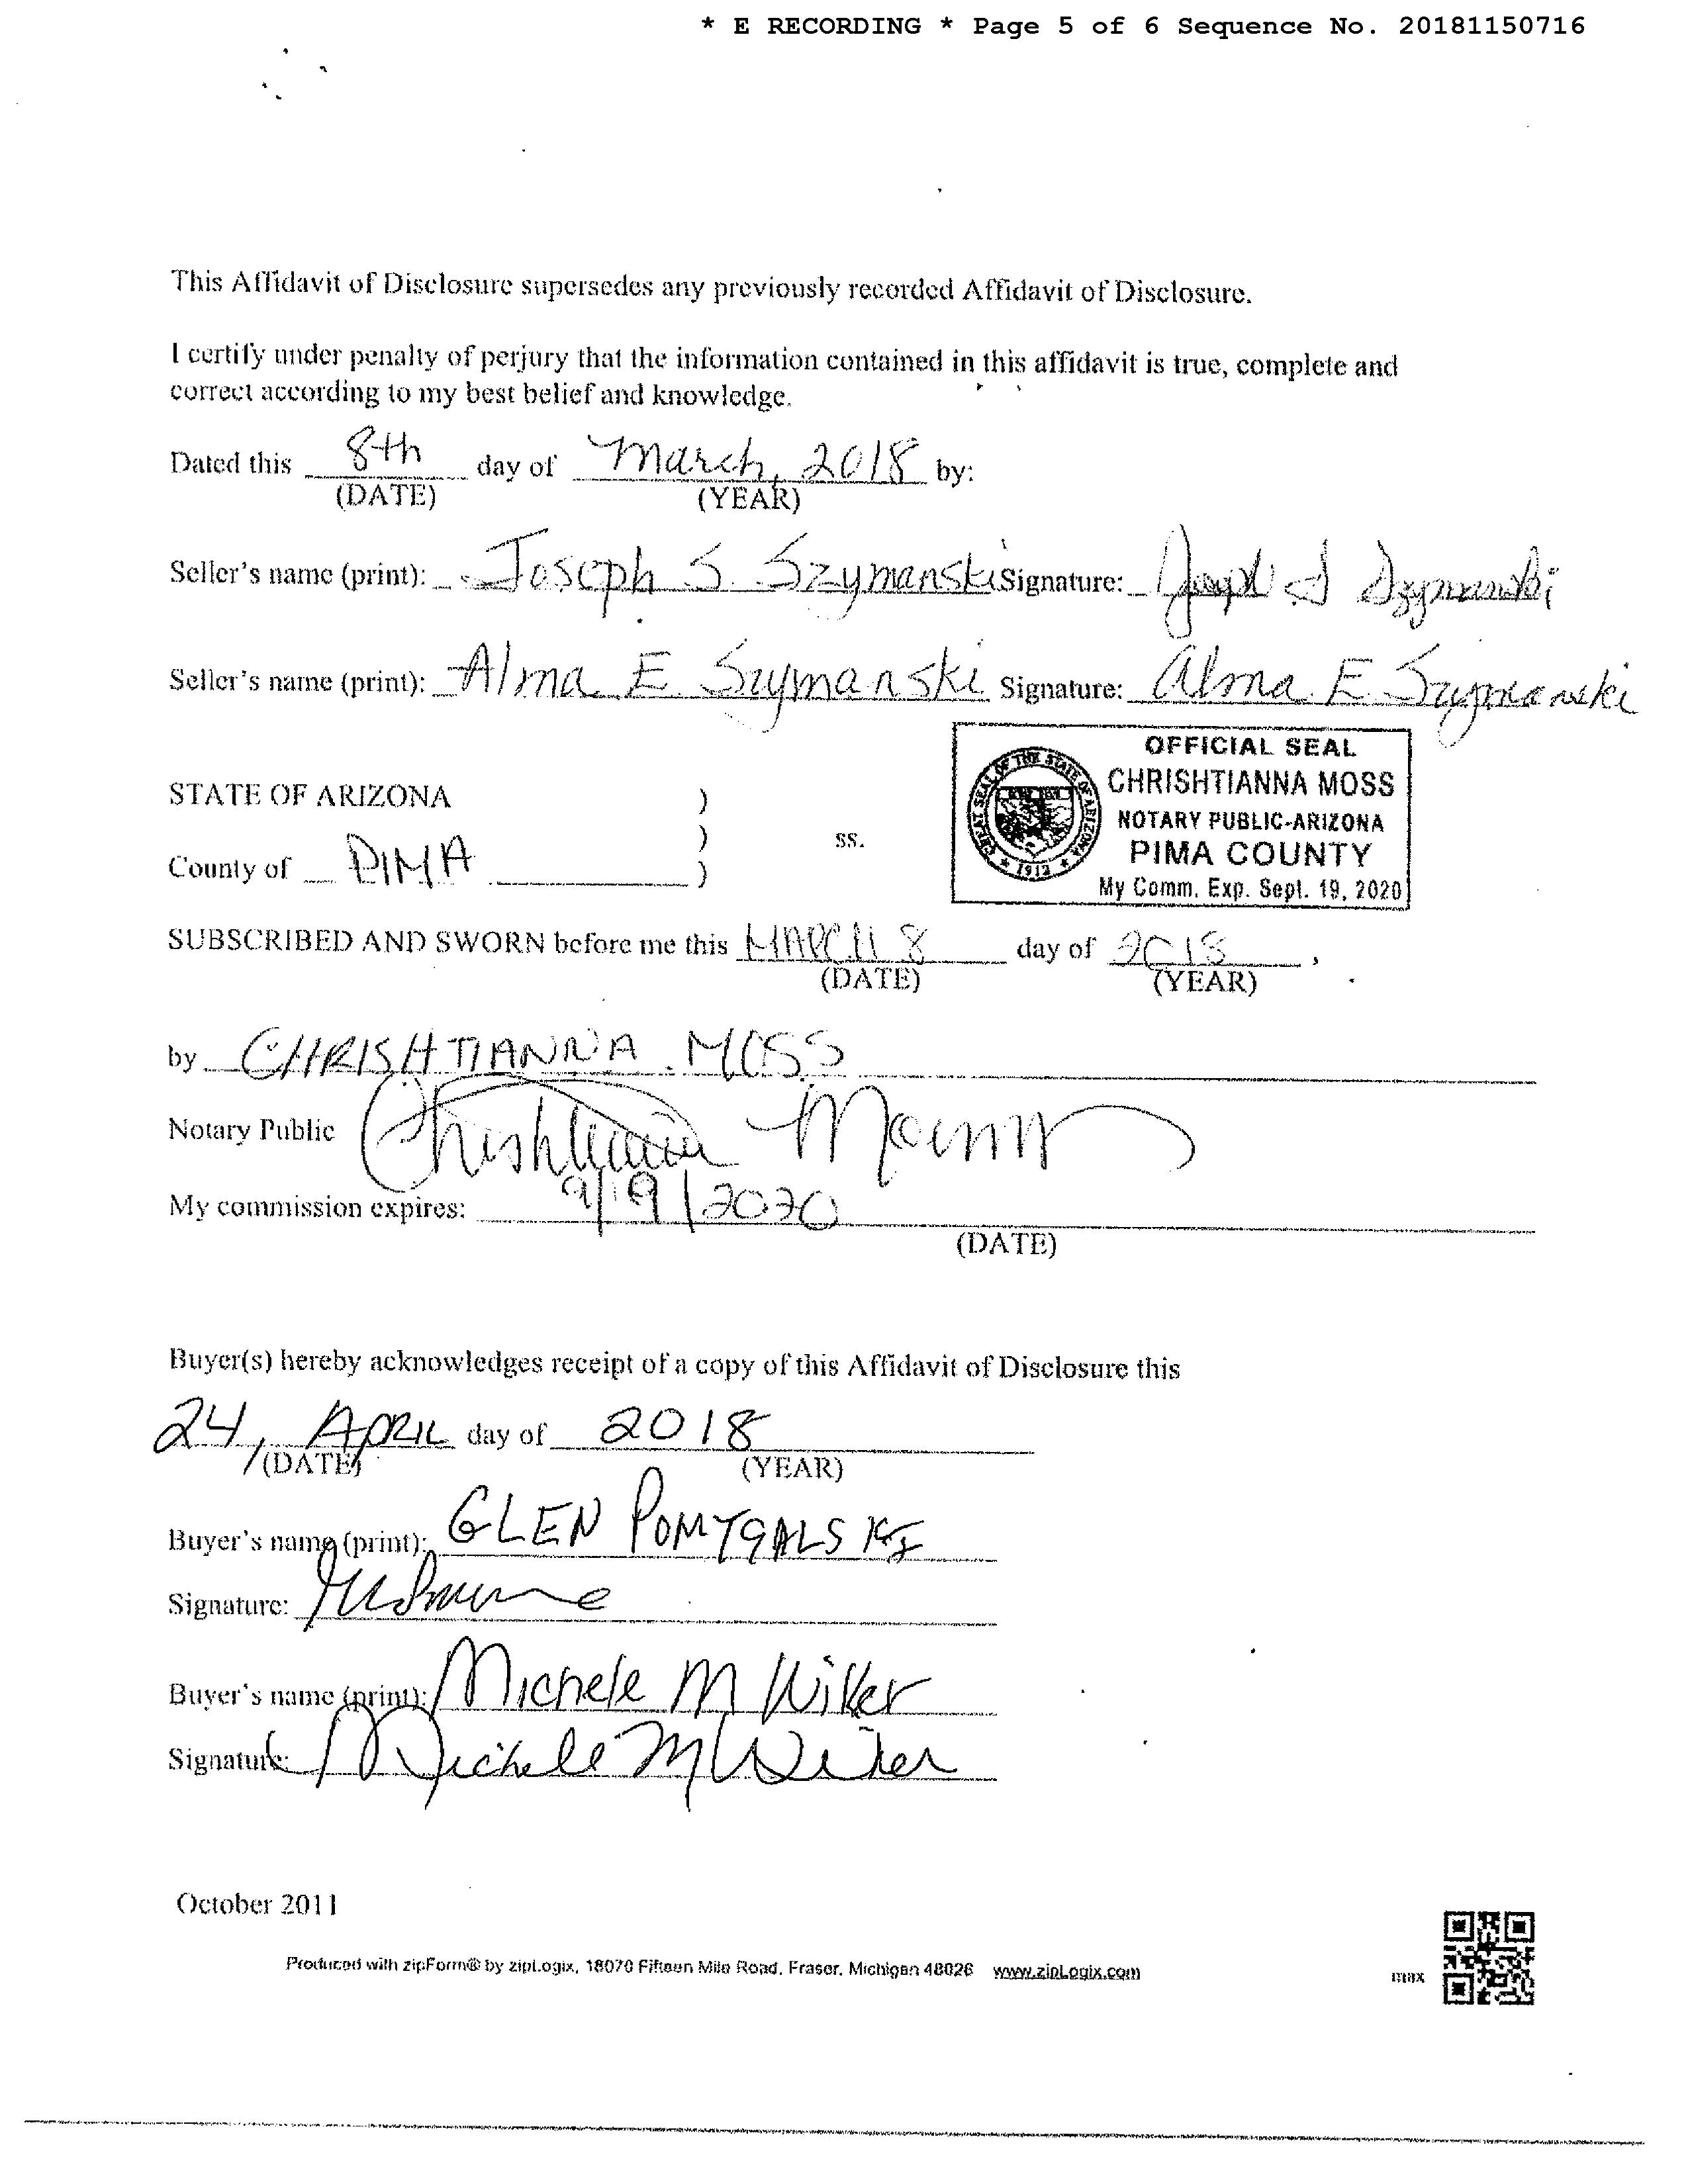 * E RECORDING * Page 5 of 6 Sequence No. 20181150716
This Affidavit of Disclosure supersedes any previously recorded Affidavit of Disclosure.
I certify under penalty of perjury that the information contained in this affidavit is true, complete and
correct according to my best belief and knowledge.
Dated this 8th day of March, 2018 by:
(DATE) (YEAR)
Seller's name (print): Joseph S. Szymanski Signature: Joseph S Szymanski
Seller's name (print): Alma E Szymanski Signature: Alma E Szymanski
OFFICIAL SEAL
CHRISHTIANNA MOSS
NOTARY PUBLIC-ARIZONA
PIMA COUNTY
My Comm. Exp. Sept. 19, 2020
GREAT SEAL OF THE STATE OF ARIZONA
1912
STATE OF ARIZONA )
) ss.
County of PIMA )
SUBSCRIBED AND SWORN before me this MARCH 8 day of 2018,
(DATE) (YEAR)
by CHRISHTIANNA MOSS
Notary Public Chrishtianna
My commission expires: 9/19/2020
(DATE)
Buyer(s) hereby acknowledges receipt of a copy of this Affidavit of Disclosure this
24, APRIL day of 2018
(DATE) (YEAR)
Buyer's name (print): GLEN POMYGALSKI
Signature:
Buyer's name (print): Michele M Wiker
Signature: Michele M Wiker
October 2011
Produced with zipForm® by zipLogix, 18070 Fifteen Mile Road, Fraser, Michigan 48026 www.zipLogix.com
max